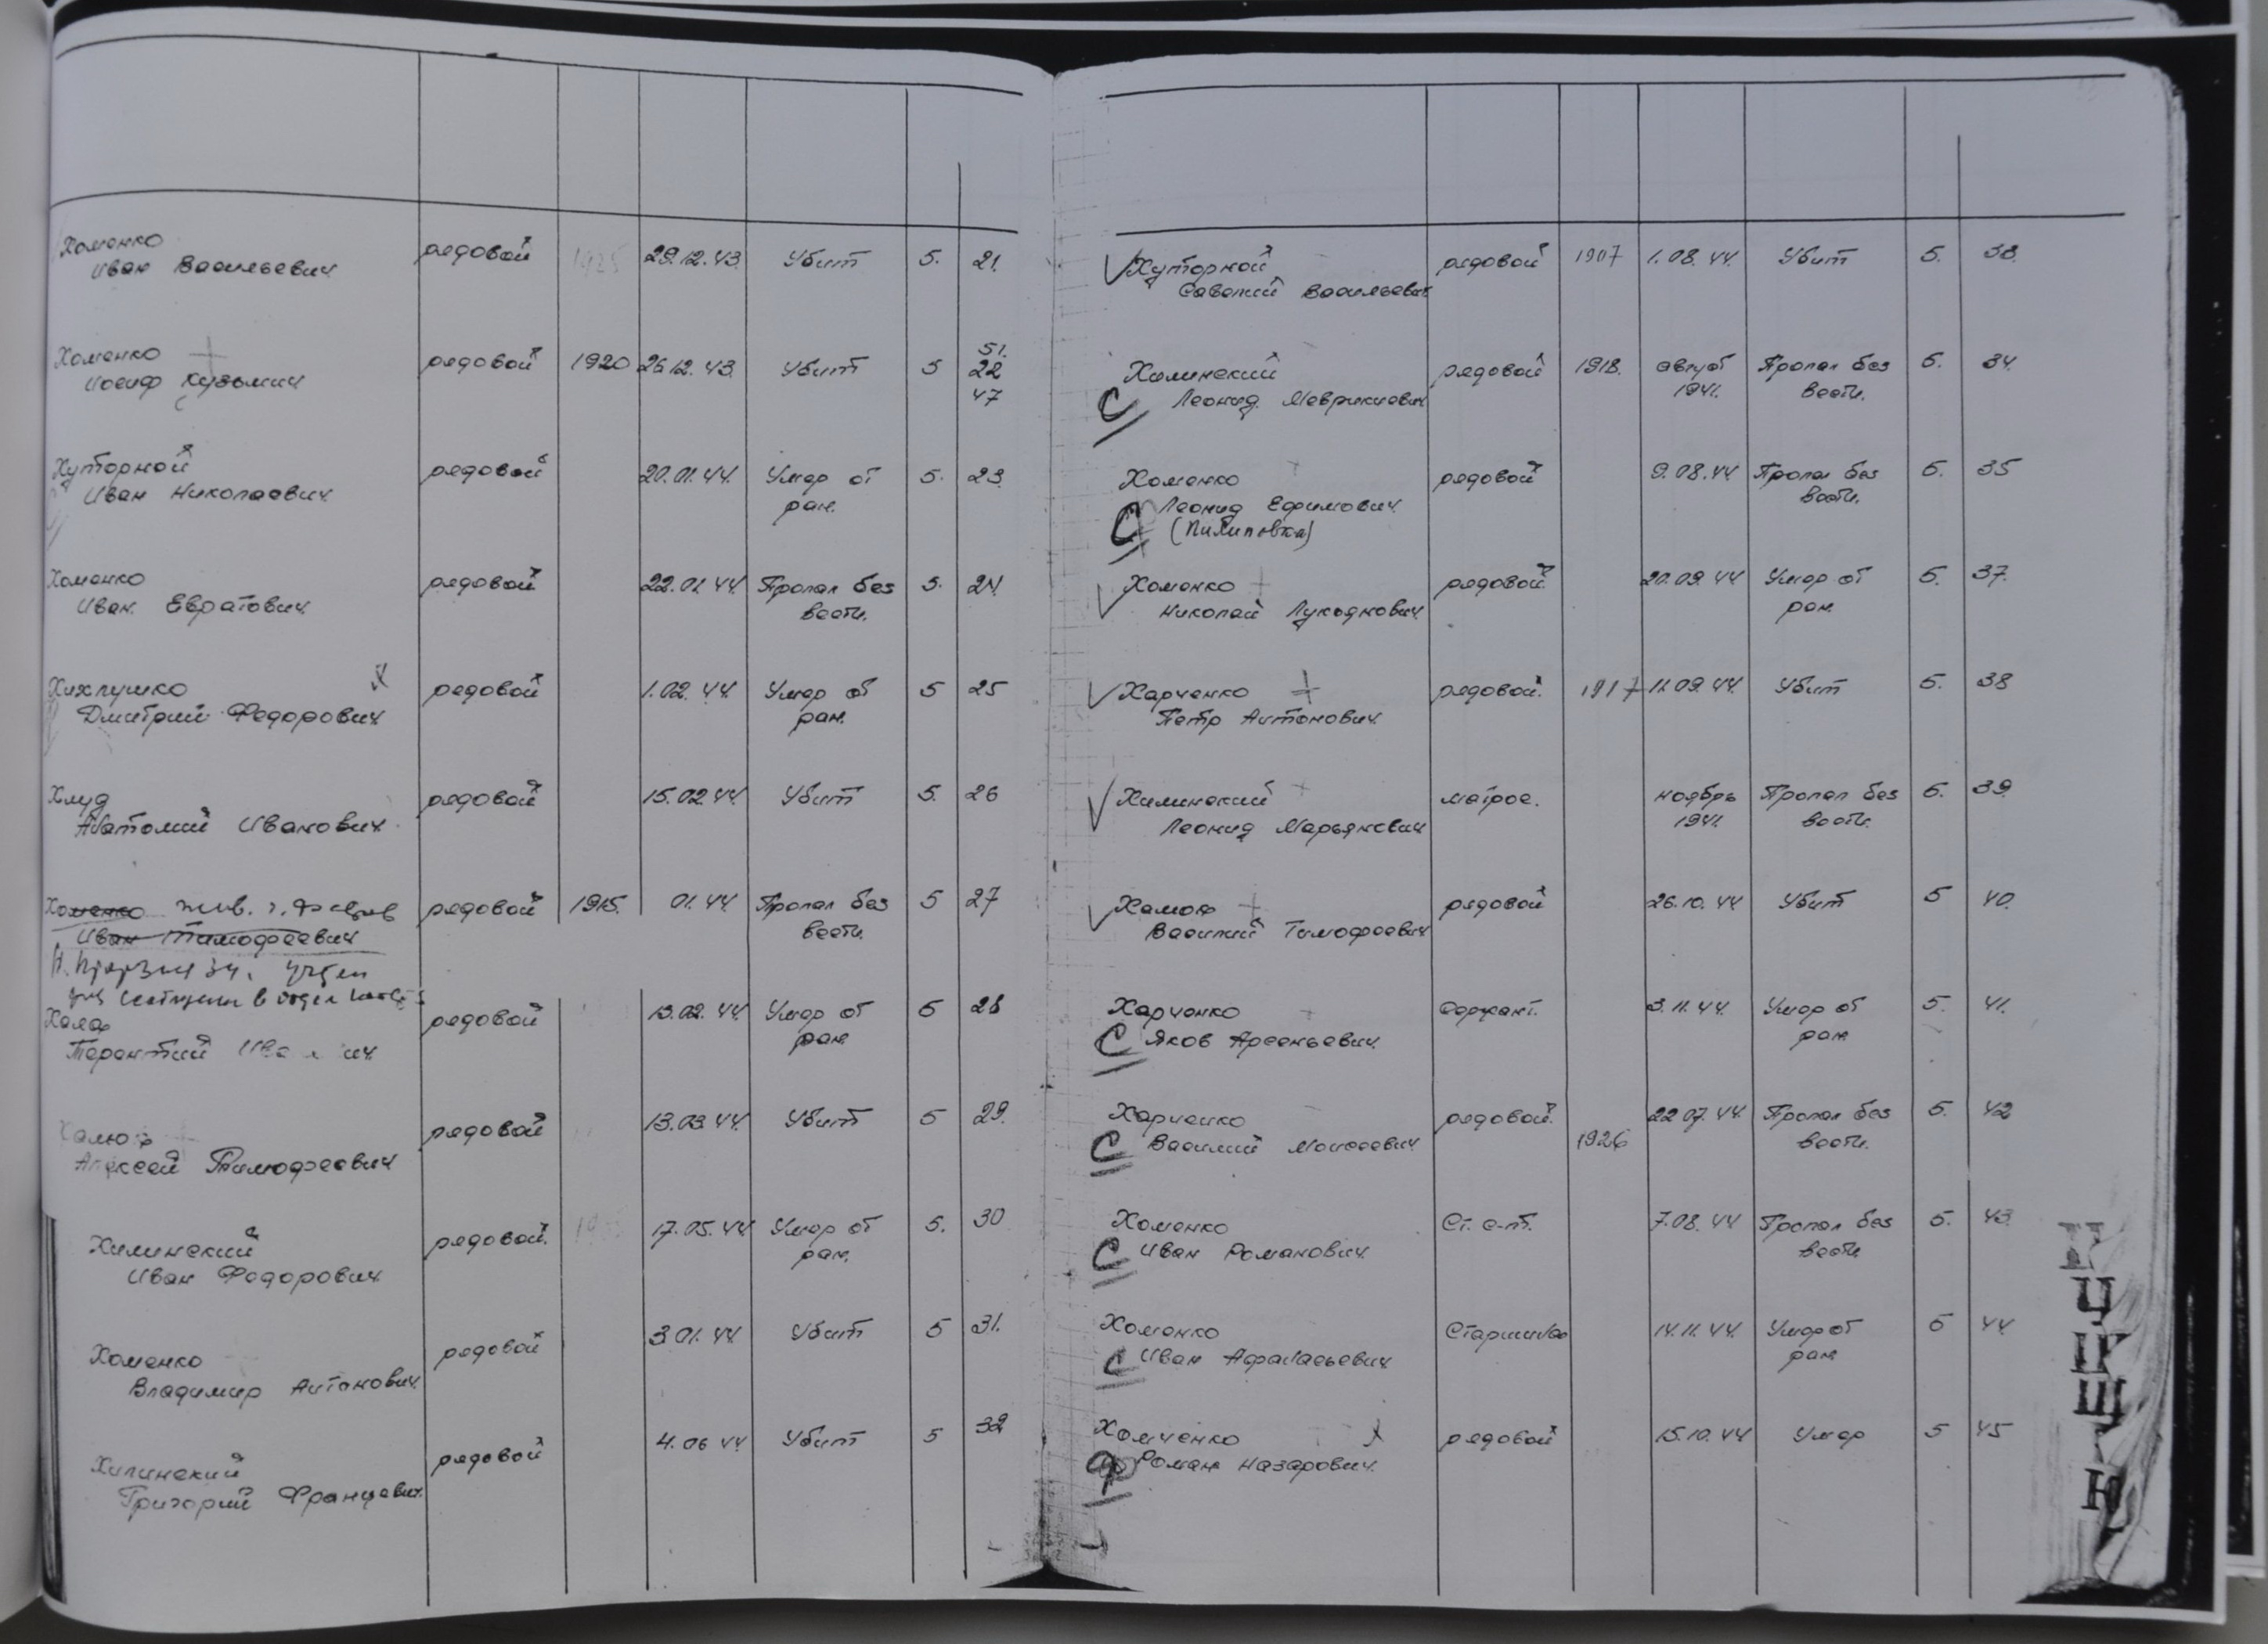 Хоменко рядовой 1925 29.12.43. Убит 5. 21.
Иван Васильевич
51.
Хоменко рядовой 1920 26.12.43. Убит 5 22
Иосиф Кузьмич 47
Хуторной рядовой 20.01.44. Умер от 5. 23.
Иван Николаевич ран.
Хоменко рядовой 22.01.44. Пропал без 5. 24.
Иван Евратович вести.
Хихлушко рядовой 1.02.44. Умер от 5 25
Дмитрий Федорович ран.
Хлуд рядовой 15.02.44. Убит 5. 26
Анатолий Иванович
Хоменко жив. г. рядовой 1915. 01.44. Пропал без 5 27
Иван Тимофеевич вести.
в отдел
рядовой 13.02.44. Умер от 5 28
Терентий ран
Халюф рядовой 13.03.44. Убит 5 29.
Алексей Тимофеевич
Хилинский рядовой 17.05.44. Умер от 5. 30
Иван Федорович ран.
Хоменко рядовой 3.01.44 Убит 5 31.
Владимир Антонович
Хилинский рядовой 4.06.44 Убит 5 32
Григорий Францевич
Хуторной рядовой 1907 1.08.44. Убит 5. 38.
Савелий Васильевич
Хилинский рядовой 1918. август Пропал без 5. 34.
С Леонид Маврикиевич 1941. вести.
Хоменко рядовой 9.08.44. Пропал без 5. 35
С Леонид Ефимович вести.
(Пилиповка)
Хоменко рядовой 20.09.44 Умер от 5. 37.
Николай Лукьянович ран.
Харченко рядовой. 1917 11.09.44. Убит 5. 38
Петр Антонович
Хилинский матрос. ноябрь Пропал без 5. 39.
Леонид Марьянович 1941. вести.
Халюф рядовой 26.10.44 Убит 5 40.
Василий Тимофеевич
Харченко сержант. 3.11.44. Умер от 5. 41.
С Яков Арсеньевич ран
Харченко рядовой. 22.07.44. Пропал без 5. 42
С Василий Моисеевич 1926 вести.
Хоменко Ст. с-нт. 7.08.44 Пропал без 5. 43.
С Иван Романович вести
Хоменко Старшина 14.11.44. Умер от 5 44.
С Иван Афанасьевич ран
Хомченко рядовой 15.10.44 Умер 5 45
Роман Назарович
Ч
Щ
Ю